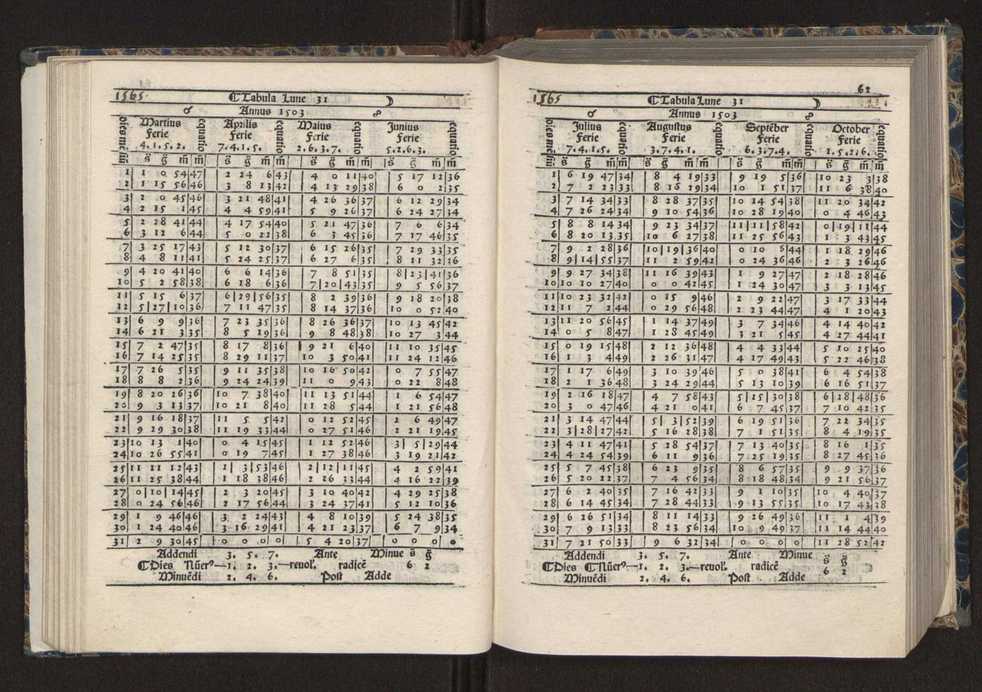 1565.
Tabula Lune 31
Annus 1503
Martius Aprilis Maius Junius
ferie ferie ferie ferie
4. 1. 5. 2. 7. 4. 1. 5. 2. 6. 3. 7. 5. 2. 6. 3.
s g m m s g m m s g m m s g m m
1 1 0 54 47 2 24 6 43 4 0 11 40 5 17 12 36
2 1 15 56 46 3 8 13 42 4 13 29 38 6 0 2 35
3 2 0 45 46 3 21 48 41 4 26 36 37 6 12 29 34
4 2 15 1 45 4 4 59 41 5 9 26 37 6 24 27 34
5 2 28 41 44 4 17 54 40 5 21 47 36 7 6 6 34
6 3 12 6 44 5 0 22 38 6 3 45 36 7 17 46 35
7 3 25 17 43 5 12 30 37 6 15 26 35 7 29 33 35
8 4 8 11 41 5 24 25 37 6 27 6 35 8 11 32 16
9 4 20 41 40 6 6 14 36 7 8 51 35 8 23 41 36
10 5 2 58 38 6 18 6 36 7 20 43 35 9 5 56 37
11 5 15 6 37 6 29 56 35 8 2 39 36 9 18 20 38
12 5 27 10 36 7 11 47 35 8 14 37 36 10 0 52 40
13 6 9 9 36 7 23 35 36 8 26 36 37 10 13 45 42
14 6 21 3 35 8 5 19 36 9 8 48 38 10 27 3 44
15 7 2 47 35 8 17 8 36 9 21 6 40 11 10 35 45
16 7 14 25 35 8 29 11 37 10 3 50 41 11 24 12 46
17 7 26 5 35 9 11 35 38 10 16 50 42 0 7 55 47
18 8 8 2 36 9 24 24 39 11 0 9 43 0 22 8 48
19 8 20 16 36 10 7 38 40 11 13 51 44 1 6 54 47
20 9 3 13 37 10 21 8 40 11 28 5 44 1 21 56 48
21 9 16 18 37 11 5 5 42 0 12 52 45 2 6 49 47
22 9 29 30 38 11 19 33 44 0 27 51 46 2 21 19 45
23 10 13 1 40 0 4 15 45 1 12 52 46 3 5 29 44
24 10 26 55 41 0 19 7 45 1 27 38 46 3 19 21 42
25 11 11 12 43 1 3 53 46 2 12 11 45 4 2 59 41
26 11 25 38 44 1 18 38 46 2 26 33 44 4 16 22 39
27 0 10 14 45 2 3 20 45 3 10 40 42 4 29 25 38
28 0 24 56 46 2 17 56 44 3 24 37 41 5 12 10 36
29 1 9 46 46 3 2 24 43 4 8 10 39 5 24 38 35
30 1 24 40 46 3 16 29 41 4 21 23 37 6 7 9 34
31 2 9 30 45 0 0 0 0 5 4 20 37 0 0 0 0
Addendi 3. 5. 7. Ante Minue s g
Dies Nūer⁹—1. 2. 3.—reuol. radicē 6 2
Minuēdi 2. 4. 6. Post Adde
61
1565
Tabula Lune 31
Annus 1503
Julius Augustus Septēber October
ferie ferie ferie ferie
7. 4. 1. 5. 3. 7. 4. 1. 6. 3. 7. 4. 1. 5. 2. 6.
s g m m s g m m s g m m s g m m
1 6 19 47 34 8 4 19 33 9 19 5 36 10 23 3 38
2 7 2 23 33 8 16 29 34 10 1 51 37 11 6 38 40
3 7 14 34 33 8 28 37 35 10 14 54 38 11 20 34 42
4 7 26 24 34 9 10 54 36 10 28 19 40 0 4 46 43
5 8 8 14 34 9 23 34 37 11 11 58 42 0 19 11 44
6 8 20 13 35 10 6 27 38 11 25 56 43 1 3 43 45
7 9 2 28 36 10 19 36 40 0 10 6 44 1 18 29 46
8 9 14 55 37 11 2 59 42 0 24 36 46 2 3 26 46
9 9 27 34 38 11 16 39 43 1 9 27 47 2 18 28 46
10 10 10 27 40 0 0 42 45 1 24 30 47 3 3 13 45
11 10 23 32 42 0 15 9 46 2 9 22 47 3 17 33 44
12 11 7 2 44 0 29 56 48 2 23 44 47 4 1 20 43
13 11 20 56 45 1 14 37 49 3 7 34 46 4 14 40 42
14 0 5 8 47 1 28 45 49 3 21 5 45 4 27 44 41
15 0 19 15 48 2 12 36 48 4 4 33 44 5 10 25 40
16 1 3 4 49 2 26 31 47 4 17 49 43 5 22 46 38
17 1 17 6 49 3 10 39 46 5 0 38 41 6 4 54 38
18 2 1 36 48 3 24 29 44 5 13 10 39 6 16 51 37
19 2 16 18 47 4 7 58 43 5 25 30 38 6 28 48 36
20 3 0 47 46 4 21 0 41 6 7 45 37 7 10 42 35
21 3 14 47 44 5 3 52 39 6 19 51 36 7 22 34 35
22 3 28 17 42 5 16 28 38 7 1 51 35 8 4 19 35
23 4 11 47 41 5 28 54 37 7 13 40 35 8 16 1 35
24 4 24 54 39 6 11 9 36 7 25 19 35 8 27 45 36
25 5 7 45 38 6 23 9 35 8 6 57 35 9 9 37 36
26 5 20 12 37 7 4 56 34 8 18 48 34 9 21 56 37
27 6 2 40 35 7 16 42 33 9 1 10 35 10 4 40 37
28 6 14 45 34 7 28 44 33 9 13 55 35 10 17 43 38
29 6 26 51 34 8 11 14 33 9 26 49 36 11 1 4 39
30 7 9 13 33 8 23 56 34 10 9 49 37 11 14 44 40
31 7 21 50 33 9 6 32 34 0 0 0 0 11 28 52 42
Addendi 3. 5. 7. Ante Minue s g
Dies Nūer⁹—1. 2. 3.—reuol. radicē 6 2
Minuēdi 2. 4. 6. Post Adde